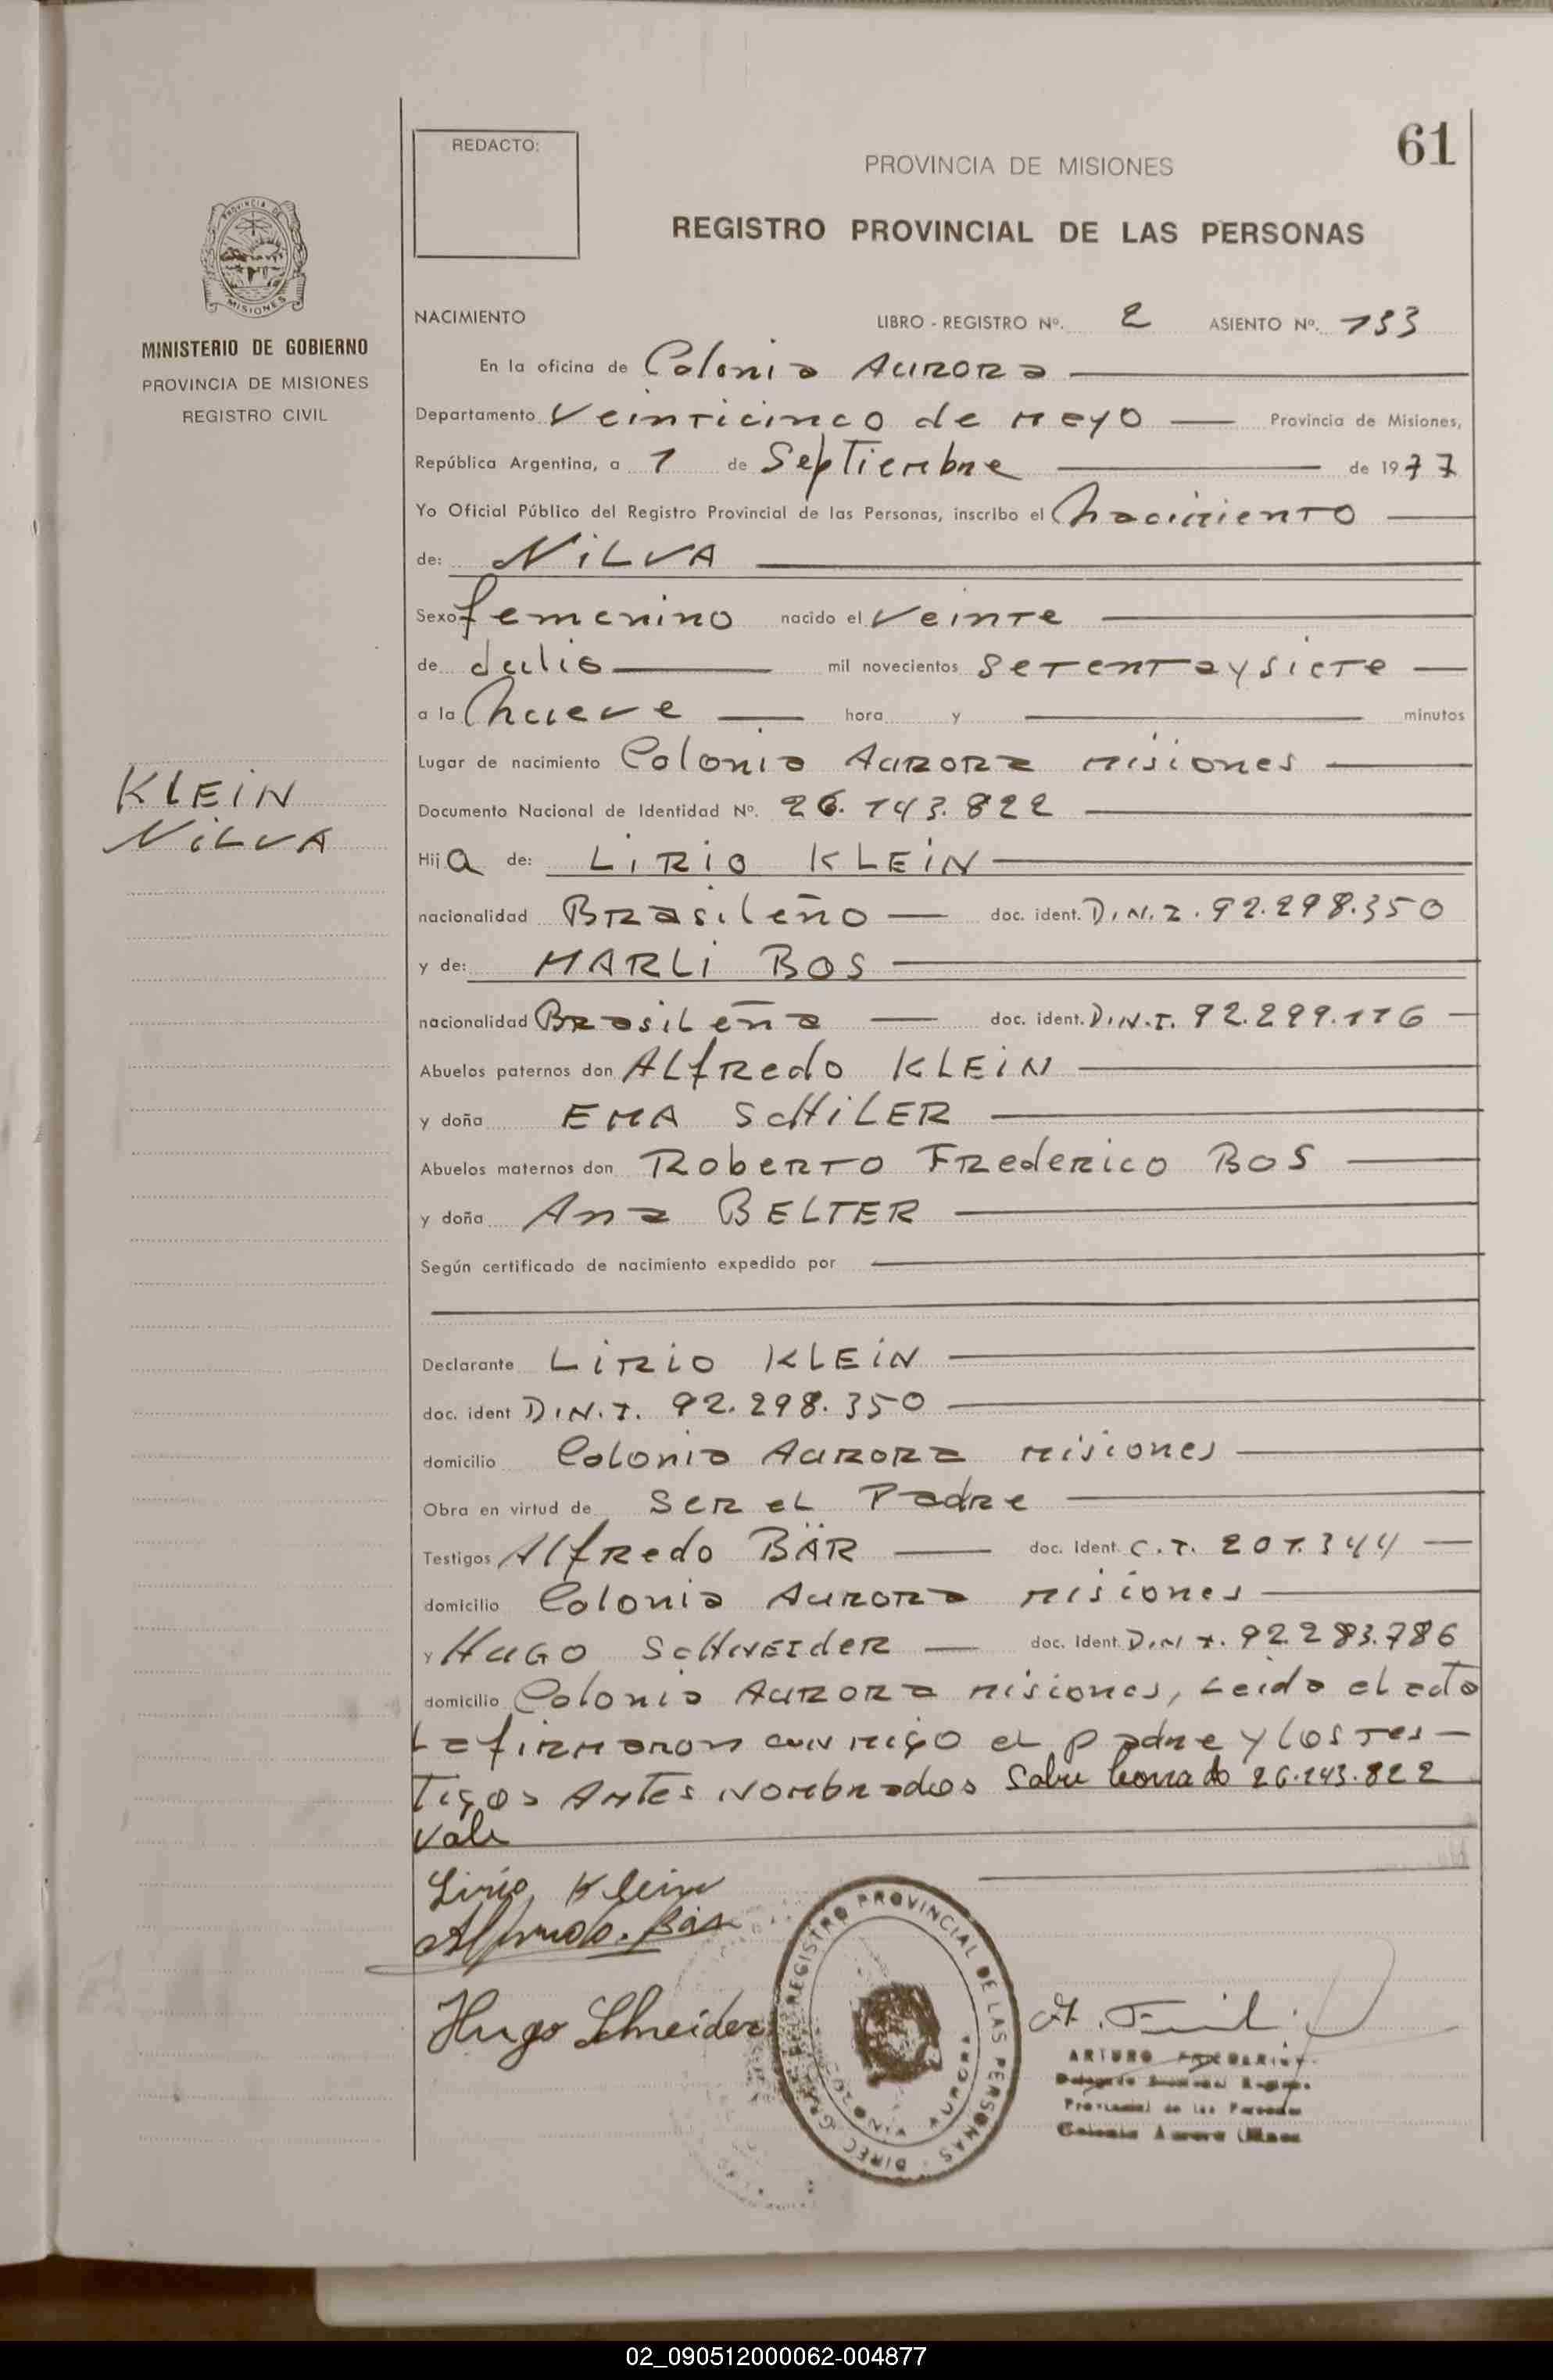 61
REDACTO:
PROVINCIA DE MISIONES
REGISTRO PROVINCIAL DE LAS PERSONAS
PROVINCIA DE
MISIONES
MINISTERIO DE GOBIERNO
PROVINCIA DE MISIONES
REGISTRO CIVIL
KLEIN
NILVA
NACIMIENTO LIBRO - REGISTRO Nº. 2 ASIENTO Nº. 133
En la oficina de Colonia Aurora
Departamento Veinticinco de Mayo Provincia de Misiones,
República Argentina, a 1 de Septiembre de 1977
Yo Oficial Público del Registro Provincial de las Personas, inscribo el nacimiento
de: NILVA
Sexo femenino nacido el veinte
de Julio mil novecientos setentaysiete
a la nueve hora y minutos
Lugar de nacimiento Colonia Aurora Misiones
Documento Nacional de Identidad Nº. 26.143.822
Hija de: LIRIO KLEIN
nacionalidad Brasileño doc. ident. D.N.I. 92.298.350
y de: MARLI BOS
nacionalidad Brasileña doc. ident. D.N.I. 92.299.116
Abuelos paternos don Alfredo KLEIN
y doña EMA SCHILER
Abuelos maternos don Roberto Frederico BOS
y doña Ana BELTER
Según certificado de nacimiento expedido por
Declarante LIRIO KLEIN
doc. ident D.N.I. 92.298.350
domicilio Colonia Aurora Misiones
Obra en virtud de ser el Padre
Testigos Alfredo BÄR doc. ident. C.I. 201.344
domicilio Colonia Aurora Misiones
y HUGO SCHNEIDER doc. ident. D.N.I. 92.283.786
domicilio Colonia Aurora Misiones, Leida el acta
La firmaron conmigo el padre y los tes-
tigos Antes Nombrados Sobre borrado 26.143.822
Vale
Lirio Klein
Alfredo. Bär
Hugo Schneider
DIREC. GRAL. DEL REGISTRO PROVINCIAL DE LAS PERSONAS
COLONIA AURORA
ARTURO
Provincial de las Personas
Colonia Aurora
02_090512000062-004877